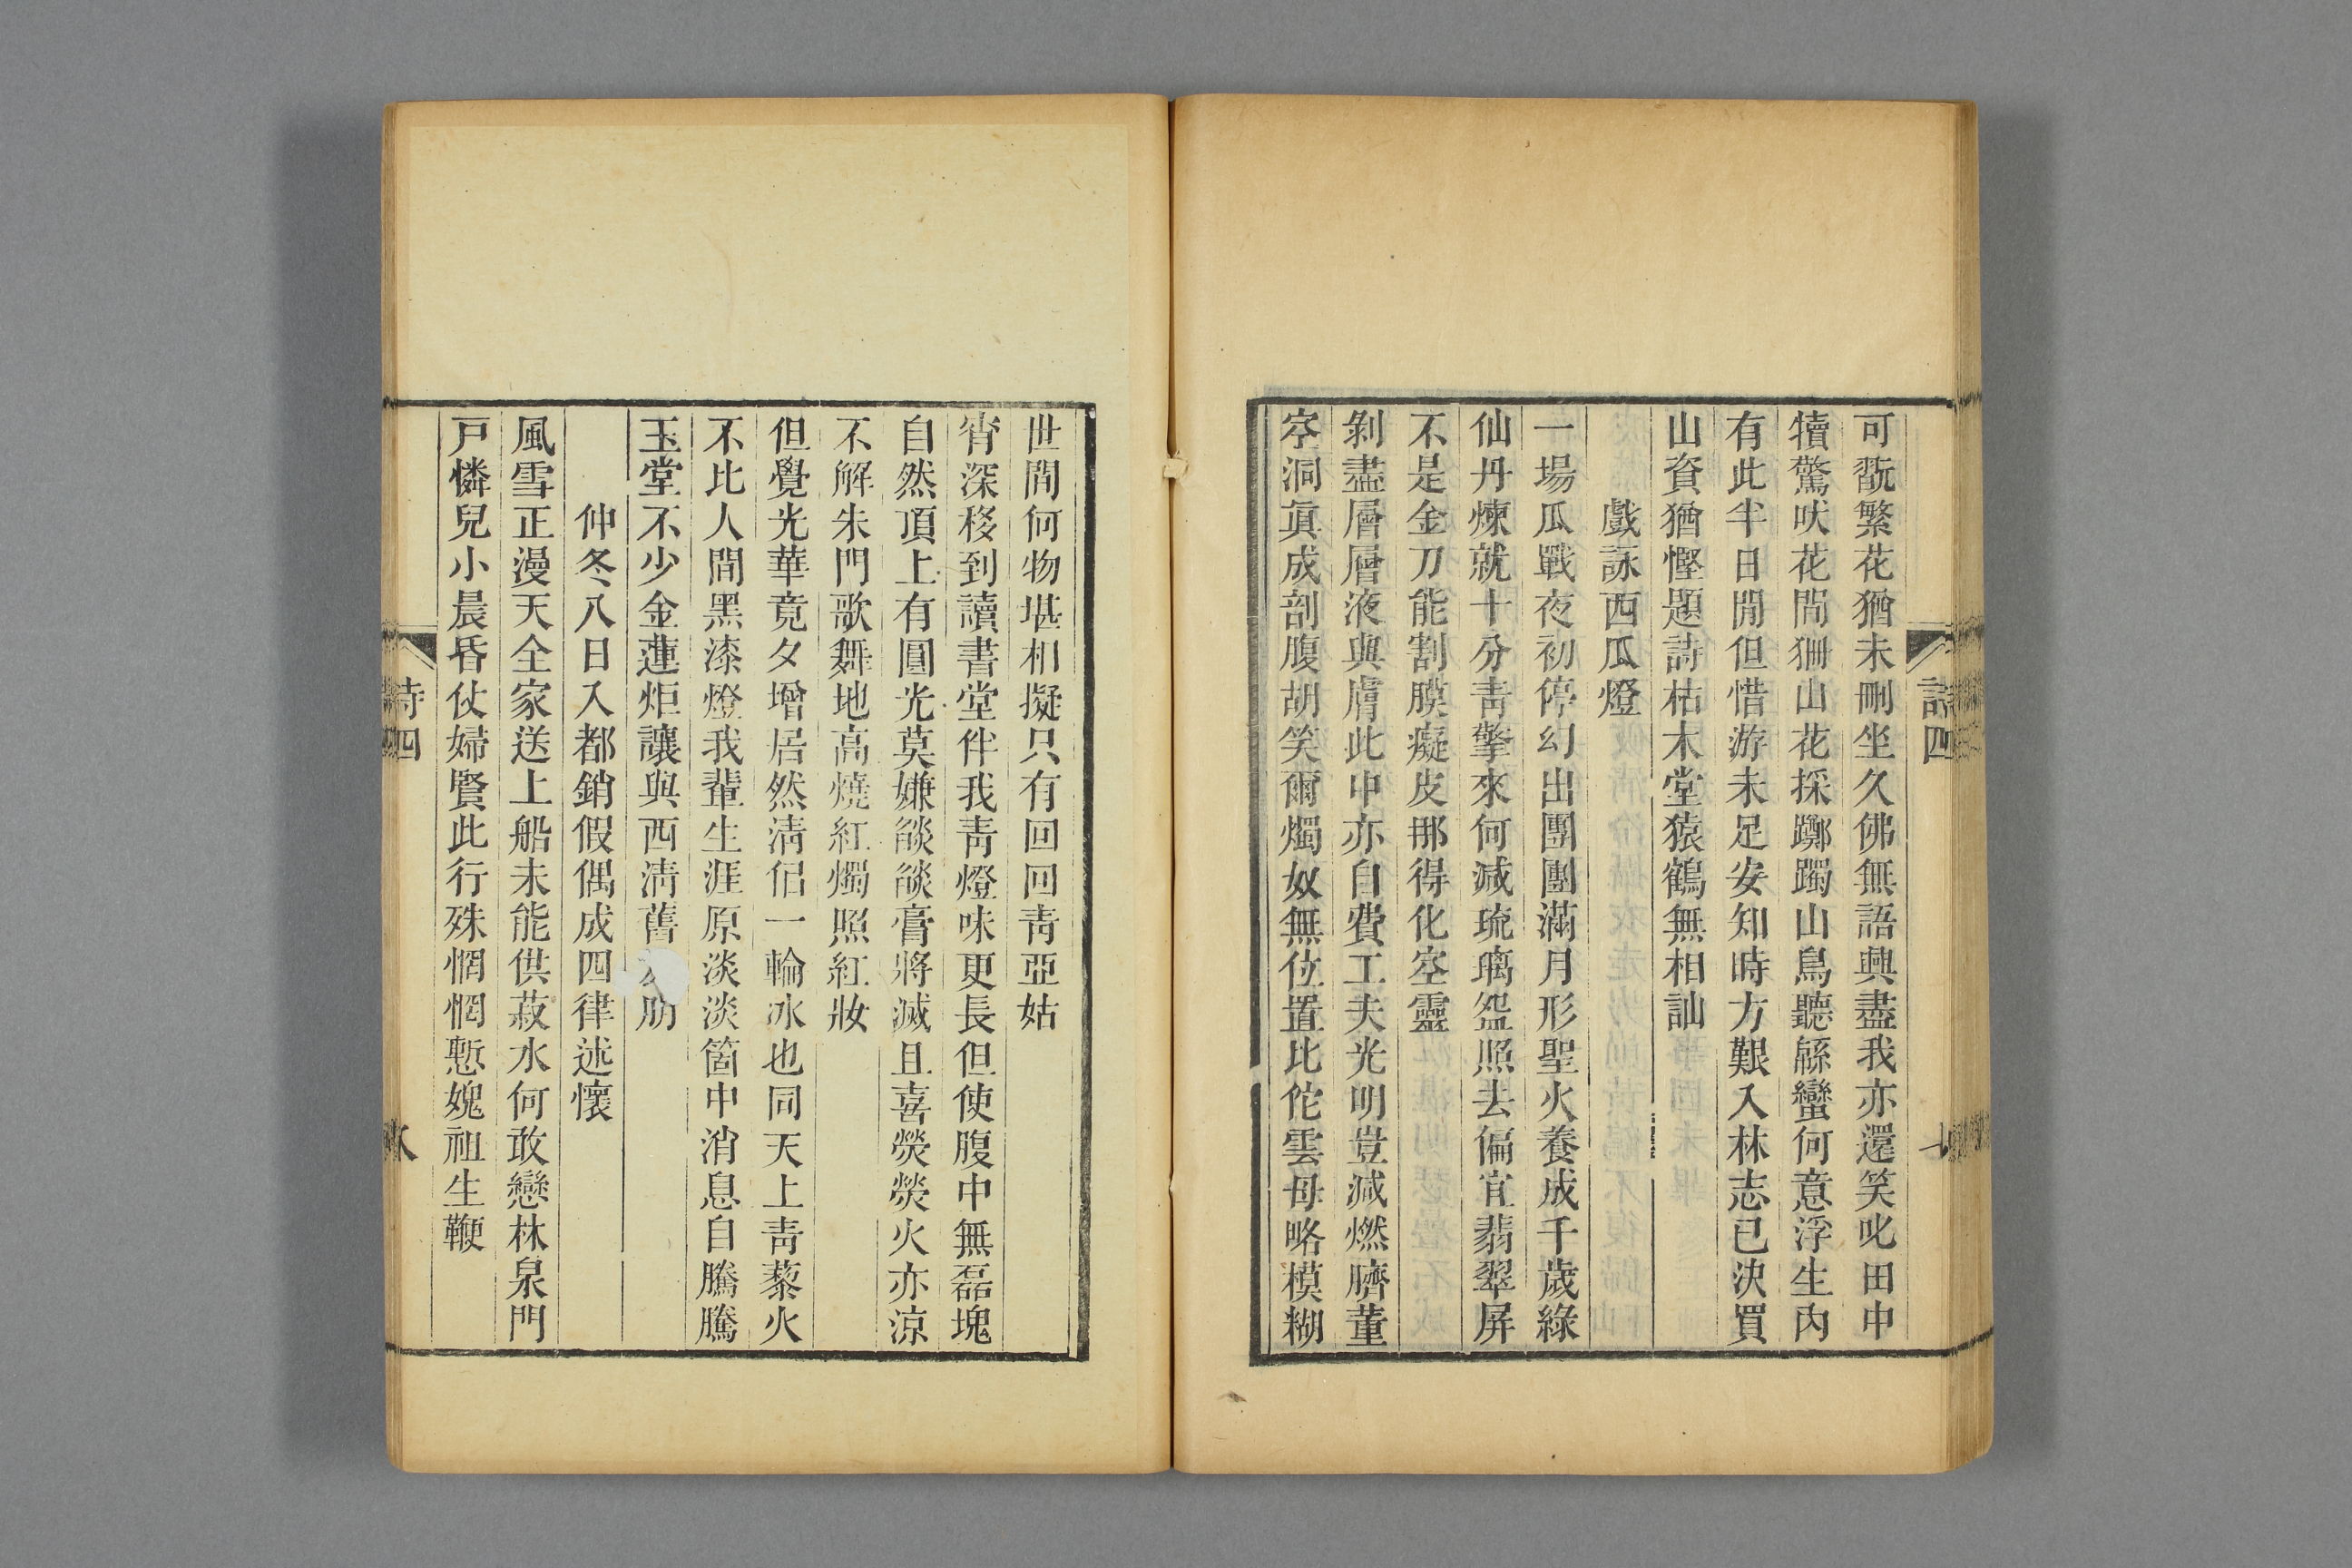 詩四
可翫繁花猶未刪坐久佛無語興盡我亦還笑叱田中
犢驚吠花間狦山花採躑躅山鳥聽緜蠻何意浮生內
有此半日閒但惜游未足安知時方艱入林志已決買
山資猶慳題詩枯木堂猿鶴無相訕
戲詠西瓜燈
一場瓜戰夜初停幻出團團滿月形聖火養成千歲綠
仙丹煉就十分靑擎來何減琉璃盌照去偏宜翡翠屏
不是金刀能割膜癡皮那得化空靈
剝盡層層液與膚此中亦自費工夫光明豈減燃臍董
空洞眞成剖腹胡笑爾燭奴無位置比佗雲母略模糊
世間何物堪相擬只有回回靑亞姑
宵深移到讀書堂伴我靑燈味更長但使腹中無磊塊
自然頂上有圓光莫嫌燄燄膏將滅且喜熒熒火亦涼
不解朱門歌舞地高燒紅燭照紅妝
但覺光華竟夕增居然淸侶一輪冰也同天上靑藜火
不比人間黑漆燈我輩生涯原淡淡箇中消息自騰騰
玉堂不少金蓮炬讓與西淸舊朋
仲冬八日入都銷假偶成四律述懷
風雪正漫天全家送上船未能供菽水何敢戀林泉門
戸憐兒小晨昏仗婦賢此行殊惘惘慙媿祖生鞭
詩四
八